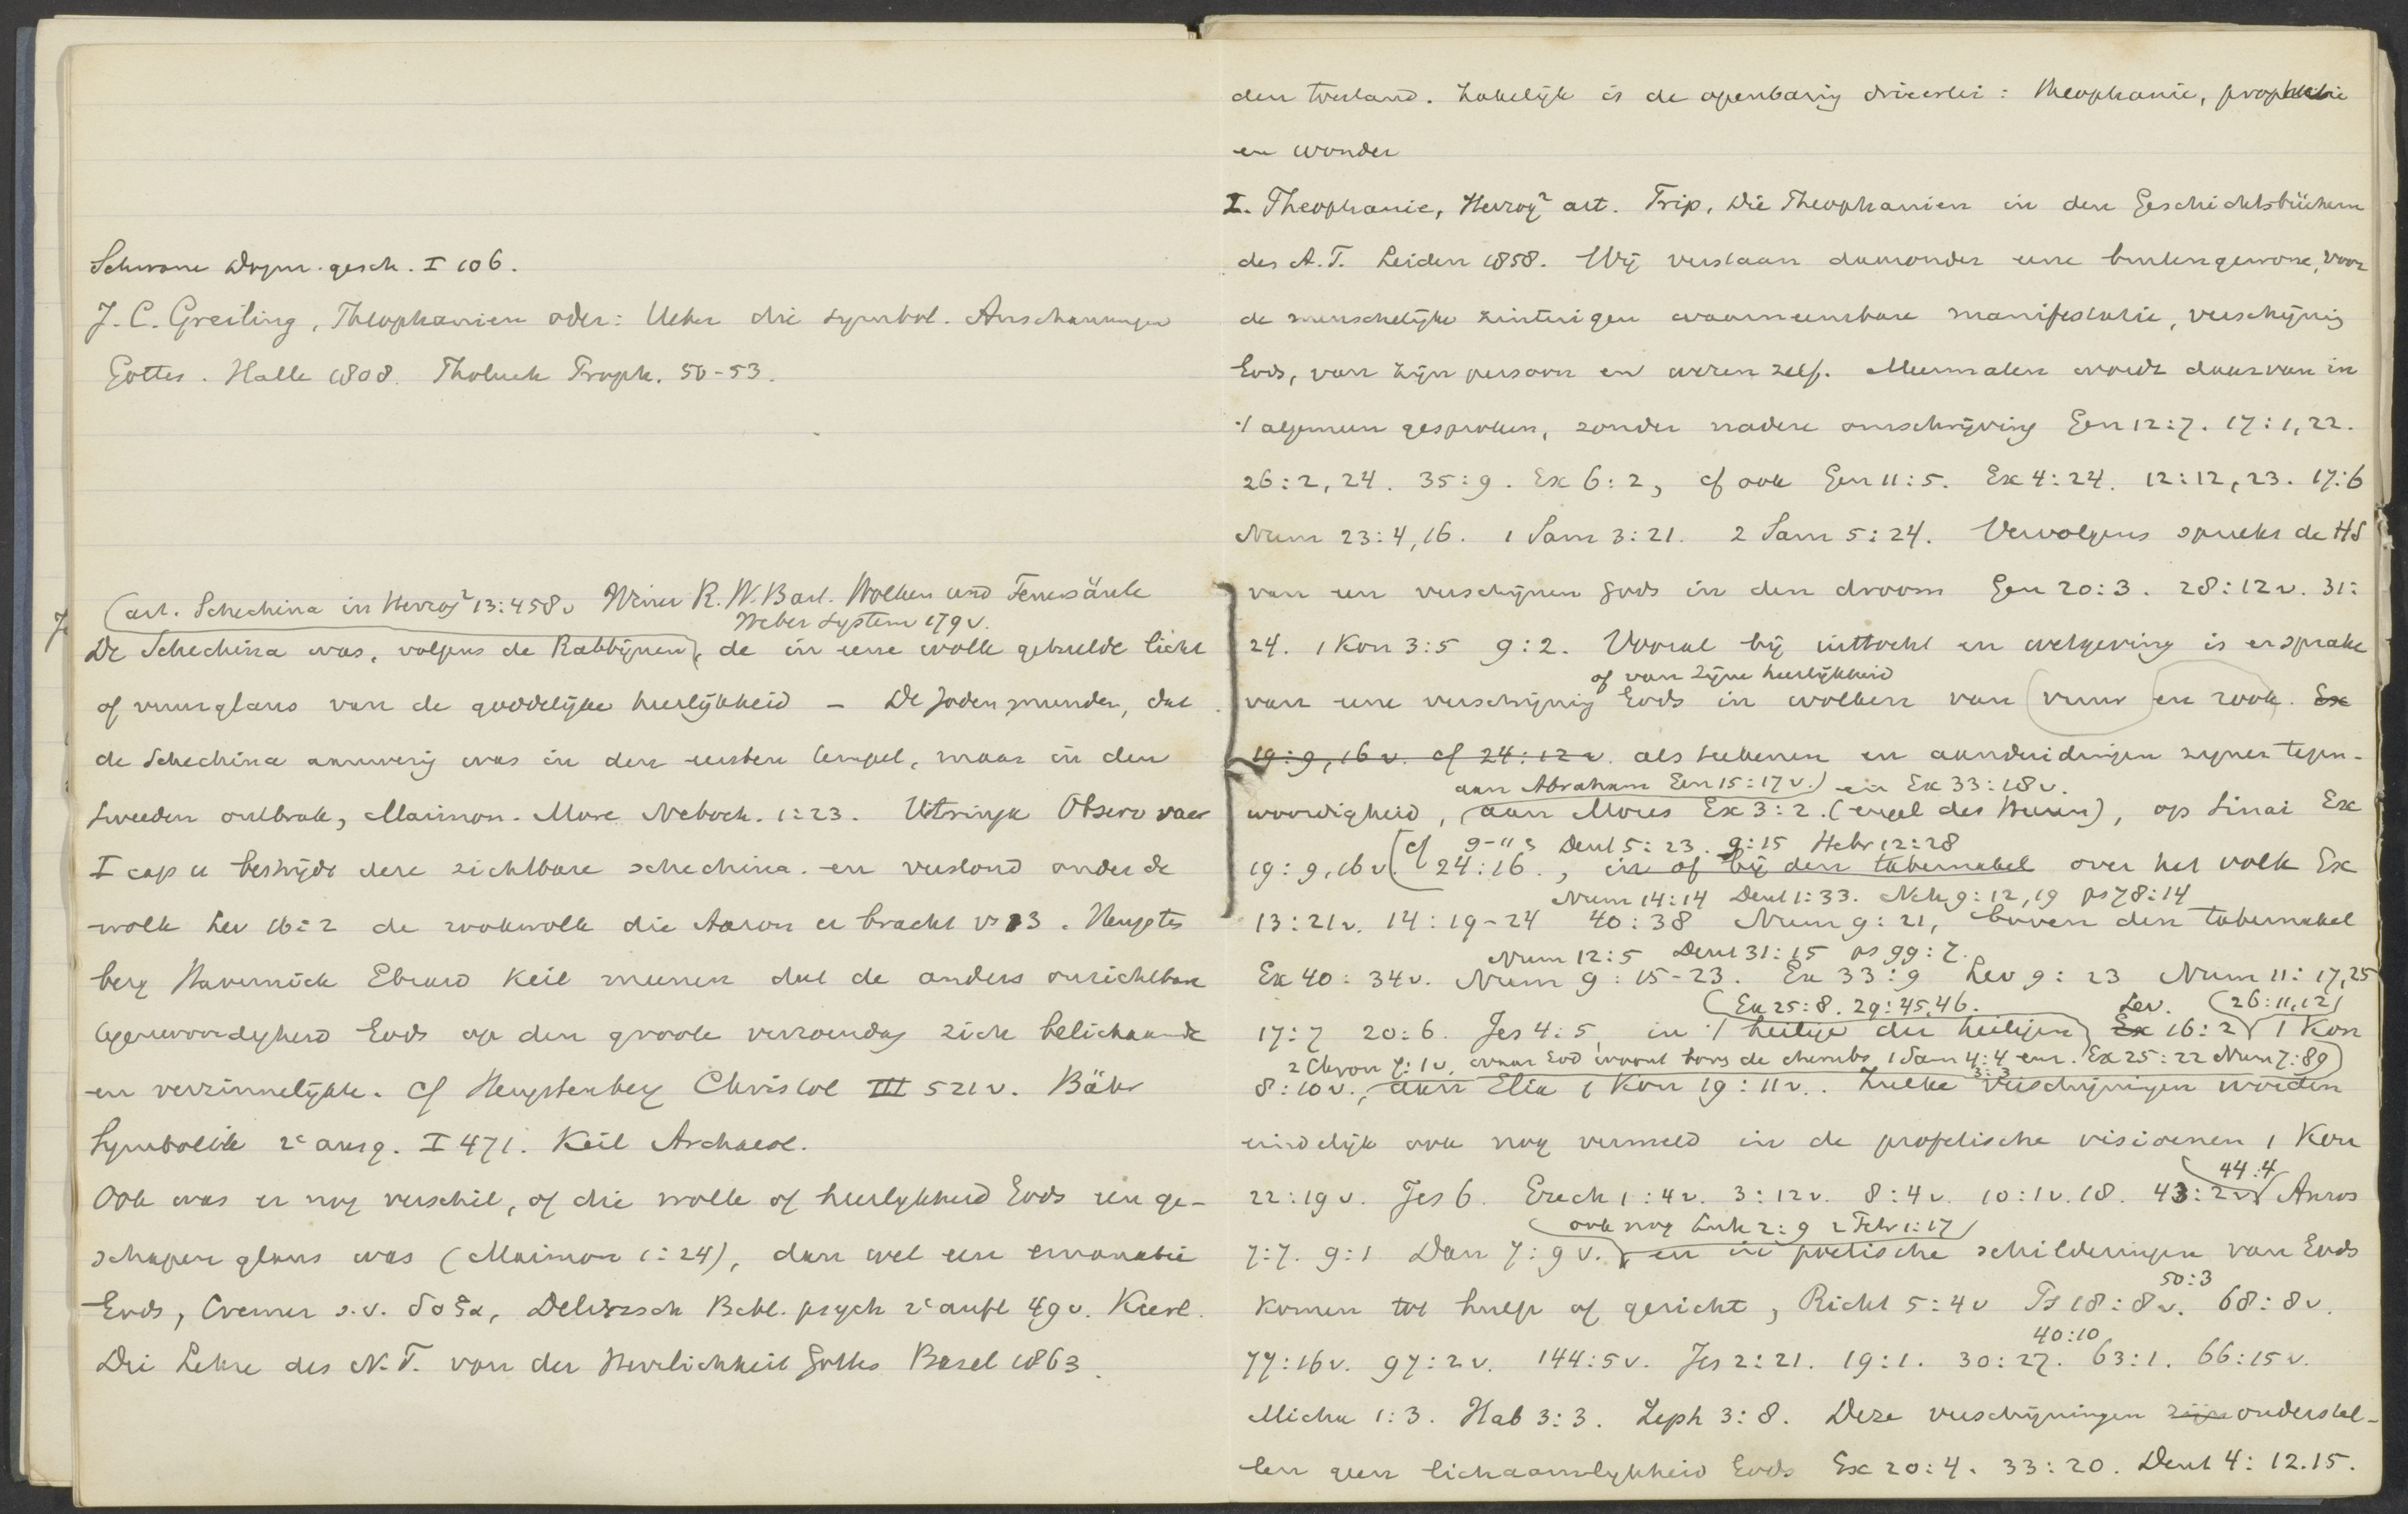 Schwane Dogm. gesch. I 106.
J. C. Greiling, Theophanien oder: Ueber die symbol. Anschauungen
Gottes. Halle 1808. Tholuck Proph. 50-53.
(art. Schechina in Herzog² 13:458v Winer R. W. B. art. Wolken und Feuersäule
Weber System 179v.
De Schechina was, volgens de Rabbijnen), de in eene wolk gehulde licht
of vuurglans van de goddelijke heerlijkheid - De Joden meenden, dat
de Schechina aanwezig was in den eersten tempel, maar in den
tweeden ontbrak, Maimon. More Neboch. 1:23. Vitringa Observ sacr
I cap 11 bestrijdt deze zichtbare schechina. en verstond onder de
wolk Lev 16:2 de rookwolk die Aaron er bracht vs 13. Hengsten
berg Havernick Ebrard Keil meenen dat de anders onzichtbare
tegenwoordigheid Gods op den grooten verzoendag zich belichaamde
en verzinnelijkte. cf Hengstenberg Christol III 521v. Bähr
Symbolik 2e ausg. I 471. Keil Archaeol.
Ook was er nog verschil, of die wolk of heerlijkheid Gods een ge-
schapen glans was (Maimon 1:24), dan wel een emanatie
Gods, Cremer s.v. δοξα, Delitzsch Bibl. psych 2e aufl 49v.
Die Lehre des N.T. von der Herrlichkeit Gottes Basel 1863.
den toestand. Zakelijk is de openbaring drieerlei: theophanie, prophetie
en wonder
I. Theophanie, Herzog² art. Trip, Die Theophanien in den Geschichtsbüchern
des A.T. Leiden 1858. Wij verstaan daaronder eene buitengewone, voor
de menschelijke zintuigen waarneembare manifestatie, verschijning
Gods, van zijn persoon en wezen zelf. Meermalen wordt daarvan in
't algemeen gesproken, zonder nadere omschrijving Gen 12:7. 17:1,22.
26:2,24. 35:9. Ex 6:2, cf ook Gen 11:5. Ex 4:24. 12:12,23. 17:6
Num 23:4,16. 1 Sam 3:21. 2 Sam 5:24. Vervolgens spreekt de HS
van een verschijnen Gods in den droom Gen 20:3. 28:12v. 31:
24. 1 Kon 3:5 9:2. Vooral bij uittocht en wetgeving is er sprake
of van Zijne heerlijkheid
van eene verschijning Gods in wolken van vuur en rook. Ex
19:9, 16v. cf 24:12v. als teekenen en aanduidingen zijner tegen-
aan Abraham Gen 15:17v.) en Ex 33:18v.
woordigheid, (aan Mozes Ex 3:2. (engel des Heeren), op Sinai Ex
9-11 Deut 5:23. 9:15 Hebr 12:28
19:9,16v. (cf 24:16., in of bij den tabernakel over het volk Ex
Num 14:14 Deut 1:33. Neh 9:12,19 ps 78:14
13:21v. 14:19-24 40:38 Num 9:21, boven den tabernakel
Num 12:5 Deut 31:15 ps 99:7.
Ex 40:34v. Num 9:15-23. Ex 33:9 Lev 9:23 Num 11:17,25
(Ex 25:8. 29:45,46. Lev. (26:11,12)
17:7 20:6. Jes 4:5, in 't heilige der heiligen) Ex 16:2 1 Kon
2 Chron 7:1v, waar God woont tens de cherubs 1 Sam 4:4 enz. Ex 25:22 Num 7:89)
8:10v., aan Elia 1 Kon 19:11v.. Zulke verschijningen worden
eindelijk ook nog vermeld in de profetische visioenen 1 Kon
44:4
22:19v. Jes 6. Ezech 1:4v. 3:12v. 8:4v. 10:1v.18. 43:2v Amos
(ook nog Luk 2:9 2 Petr 1:17)
7:7. 9:1 Dan 7:9v. en in poetische schilderingen van Gods
50:3
komen tot hulp of gericht, Richt 5:4v Ps 18:8v. 68:8v.
40:10
77:16v. 97:2v. 144:5v. Jes 2:21. 19:1. 30:27. 63:1. 66:15v.
Micha 1:3. Hab 3:3. Zeph 3:8. Deze verschijningen zijn onderstel-
len geen lichaamelijkheid Gods Ex 20:4. 33:20. Deut 4:12.15.